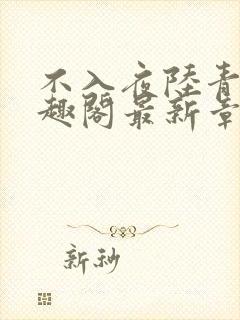 不入夜陸青
趣閣最新章
新秒